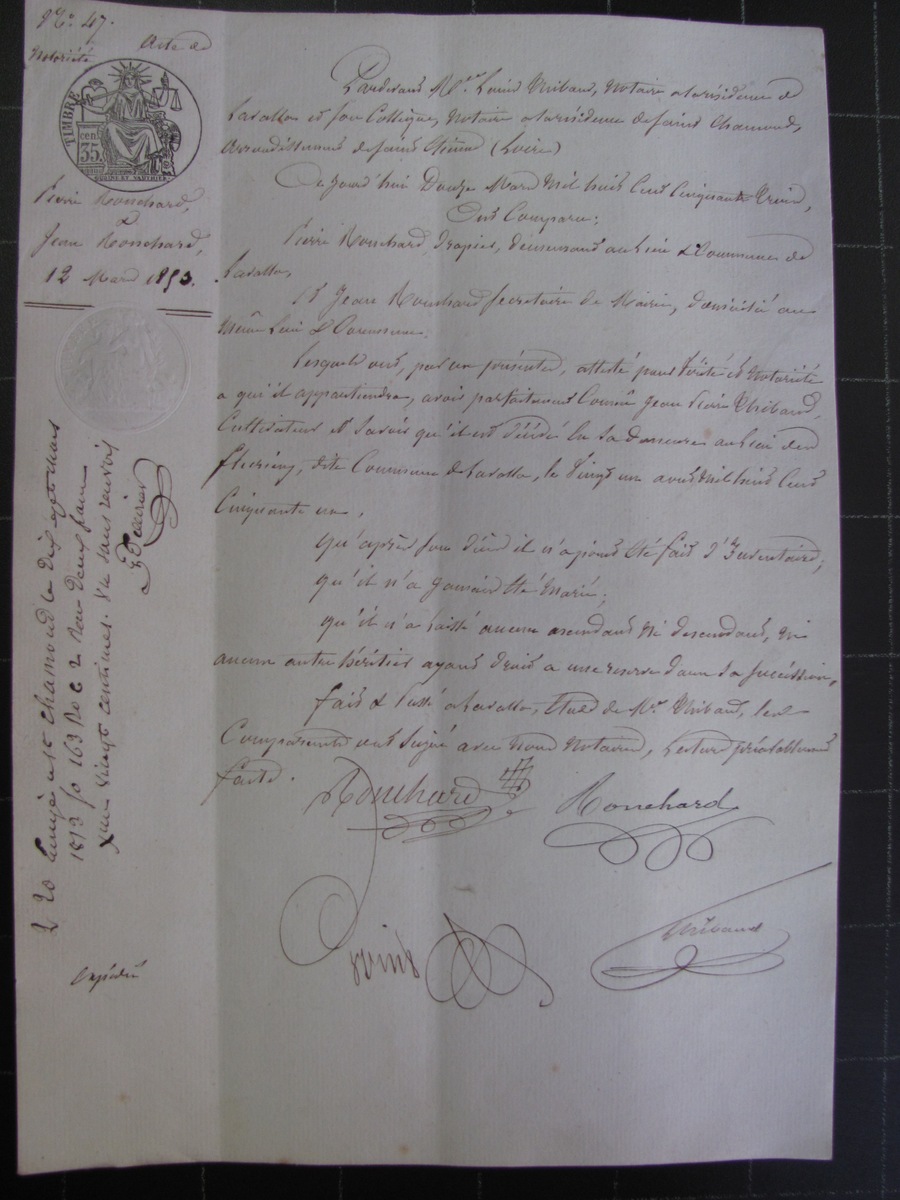 N° 47.
Acte de
Notoriété
TIMBRE
35 cen
Pierre Ronchard,
&
Jean Ronchard,
12 Mars 1853.
Pardevant Me Louis Thibaud, Notaire a la résidence de
Lavalla et son Collègue, Notaire a la résidence de Saint Chamond,
arrondissement de Saint Etienne (Loire)
Ce jourd'hui Douze Mars Mil huit Cent Cinquante Trois,
Ont Comparu;
Pierre Ronchard, Drapier, demeurant au lieu & Commune de
Lavalla,
Et Jean Ronchard Secrétaire de Mairie, domicilié au
Même Lieu & Commune.
Lesquels ont, par ces présentes, attesté pour Vérité et Notoriété
a qui il appartiendra, avoir parfaitement Connu Jean Pierre Thibaud,
Cultivateur et Savoir qu'il est Décédé en Sa demeure au lieu de
dite Commune de Lavalla, le Vingt un avril Mil huit Cent
Cinquante un,
qu'après Son Décès il n'a point été fait d'Inventaire;
qu'il n'a Jamais été Marié;
qu'il n'a laissé aucun ascendant Ni descendant, ni
aucun autre héritier ayant droit a une reserve dans Sa Succession.
Fait & Passé a Lavalla, Etude de Me Thibaud, Les
Comparants ont Signé avec Nous Notaires, Lecture préalablement
faite.
Ronchard
Ronchard
Thibaud
Enregistré à St Chamond le dix sept mars
1853 fo 163 Ro C 2 Reçu deux francs
vingt centimes. sans renvoi
Expédié